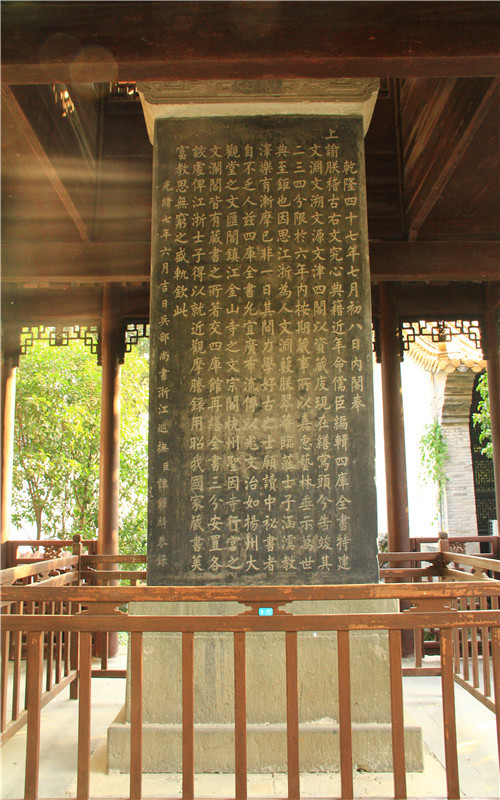 乾隆四十七年七月初八日內閣奉
上諭朕稽古右文究心典籍近年命儒臣編輯四庫全書特建
文淵文溯文源文津四閣以資藏庋現在繕寫頭分告竣其
二三四分限於六年內按期蕆事所以嘉惠藝林垂示萬世
典至鉅也因思江浙為人文淵藪朕翠華臨蒞士子涵濡教
澤樂育漸摩已非一日其間力學好古之士願讀中秘書者
自不乏人茲四庫全書允宜廣布流傳以光文治如揚州大
觀堂之文匯閣鎮江金山寺之文宗閣杭州聖因寺行宮之
文瀾閣皆有藏書之所著交四庫館再繕全書三分安置各
該處俾江浙士子得以就近觀摩謄錄用昭我國家藏書美
富教思無窮之盛軌欽此
光緒七年六月吉日兵部尚書浙江巡撫臣譚鍾麟恭錄